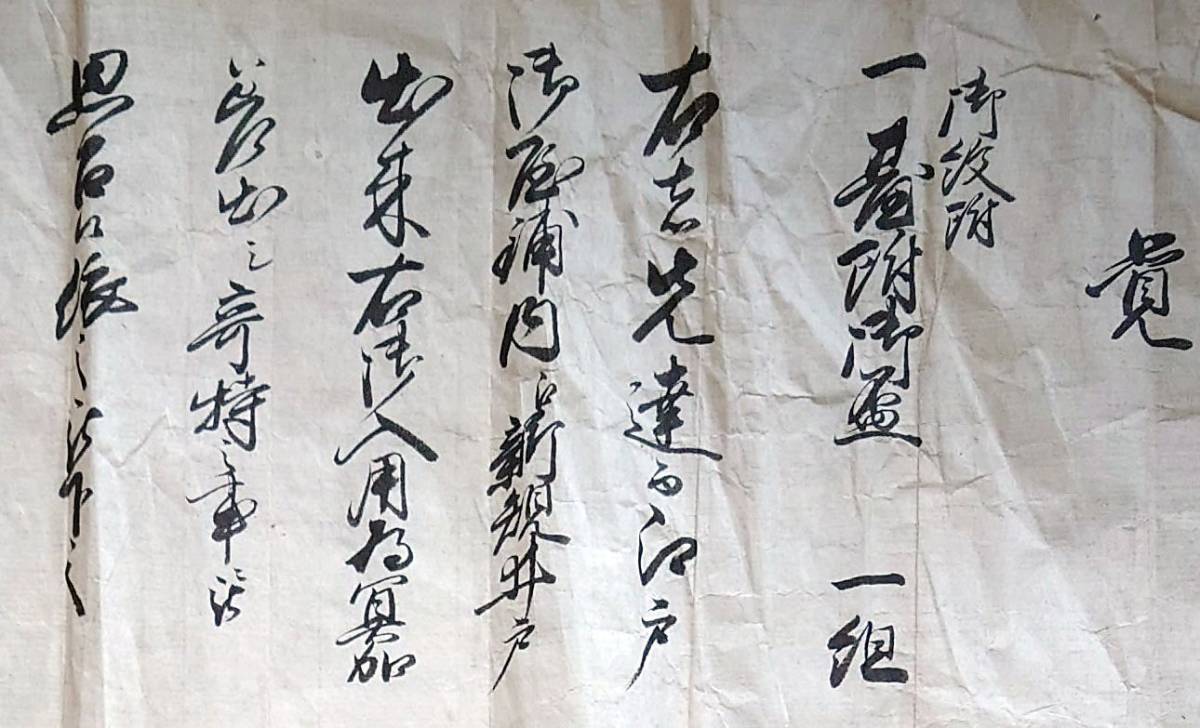 覚
御紋附
一 台附御盃 一組
右者先達而江戸
御屋鋪内江新規井戸
出来右御入用為冥加
差出之奇特之事ニ
思召候依之被下之